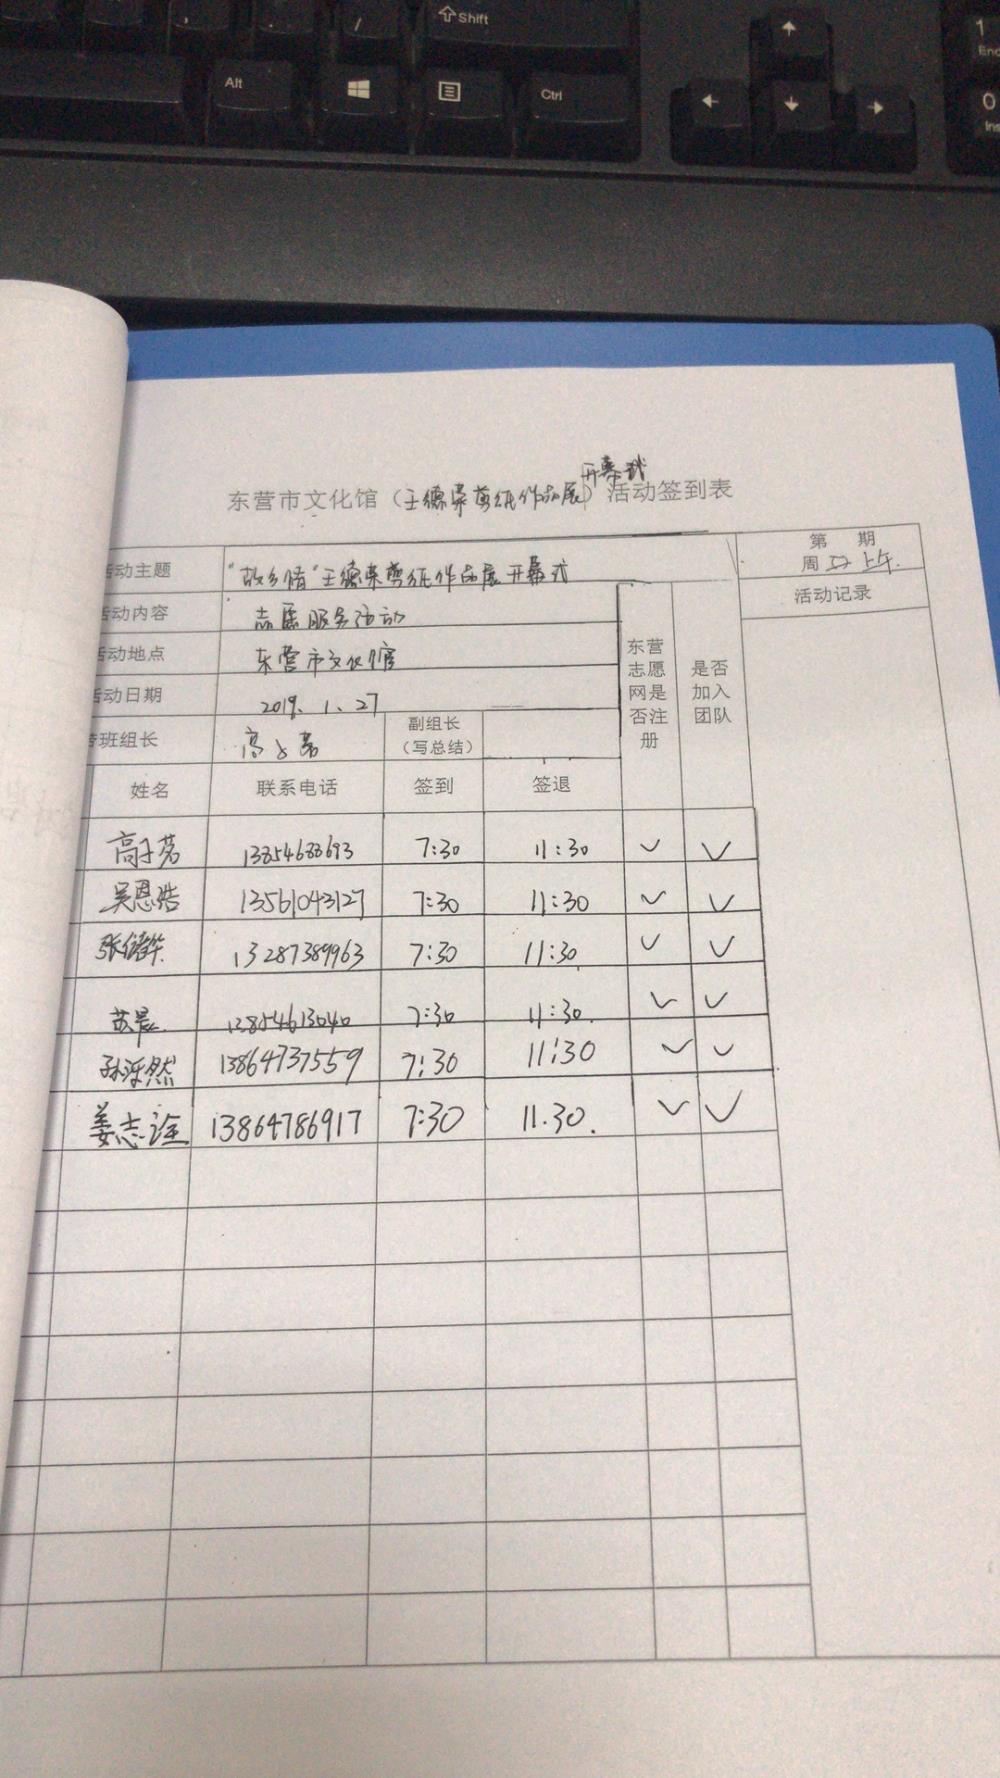 /
Shift
Alt
Ctrl
1
End
0
Ins
开幕式
东营市文化馆（王德荣剪纸作品展）活动签到表
第 期
周日上午
活动记录
活动主题 "故乡情"王德荣剪纸作品展开幕式
活动内容 志愿服务活动
活动地点 东营市文化馆
活动日期 2019.1.27
班组长 高子茗 副组长（写总结）
东营志愿网是否注册 是否加入团队
姓名 联系电话 签到 签退
高子茗 13854688693 7:30 11:30 ✓ ✓
吴恩浩 13561043127 7:30 11:30 ✓ ✓
张 13287389963 7:30 11:30 ✓ ✓
苏晨 13854613040 7:30 11:30. ✓ ✓
孙泺然 13864737559 7:30 11:30 ✓ ✓
姜志诠 13864786917 7:30 11.30. ✓ ✓